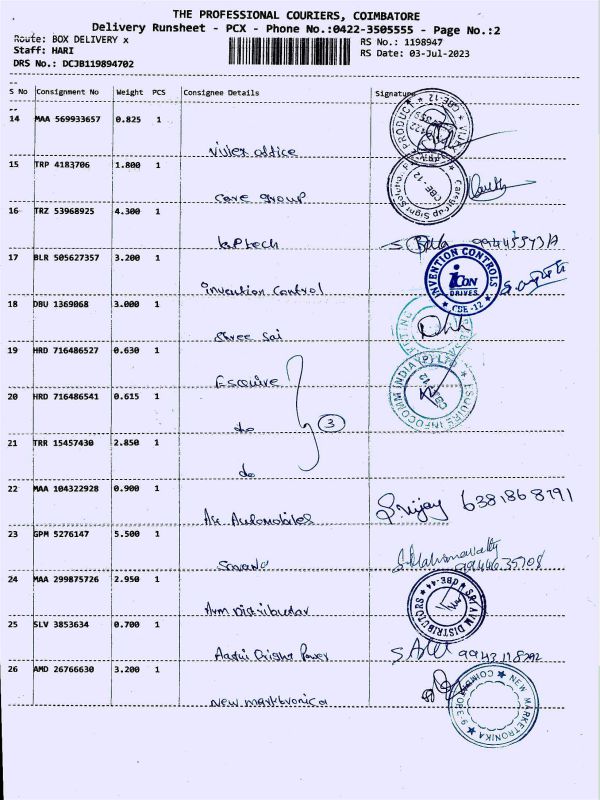 THE PROFESSIONAL COURIERS, COIMBATORE
Delivery Runsheet - PCX - Phone No.:0422-3505555 - Page No.:2
Route: BOX DELIVERY x
RS No.: 1198947
Staff: HARI
RS Date: 03-Jul-2023
DRS No.: DCJB119894702
S No Consignment No Weight PCS Consignee Details Signature
14 MAA 569933657 0.825 1
office
15 TRP 4183706 1.800 1
Care group
16 TRZ 53968925 4.300 1
17 BLR 505627357 3.200 1
INVENTION CONTROLS
iCON
DRIVES
CBE-12
invention Control
18 DBU 1369068 3.000 1
Shree Sai
19 HRD 716486527 0.630 1
Esquire
ESQUIRE INFOCOMM INDIA (P) LTD
20 HRD 716486541 0.615 1
do
3
21 TRR 15457430 2.850 1
do
22 MAA 104322928 0.900 1
S.Vijay 6381868791
Automobiles
23 GPM 5276147 5.500 1
24 MAA 299875726 2.950 1
SRI AVM DISTRIBUTORS
Avm Distributor
25 SLV 3853634 0.700 1
Power
26 AMD 26766630 3.200 1
NEW MARKETRONIKA
New marktronica